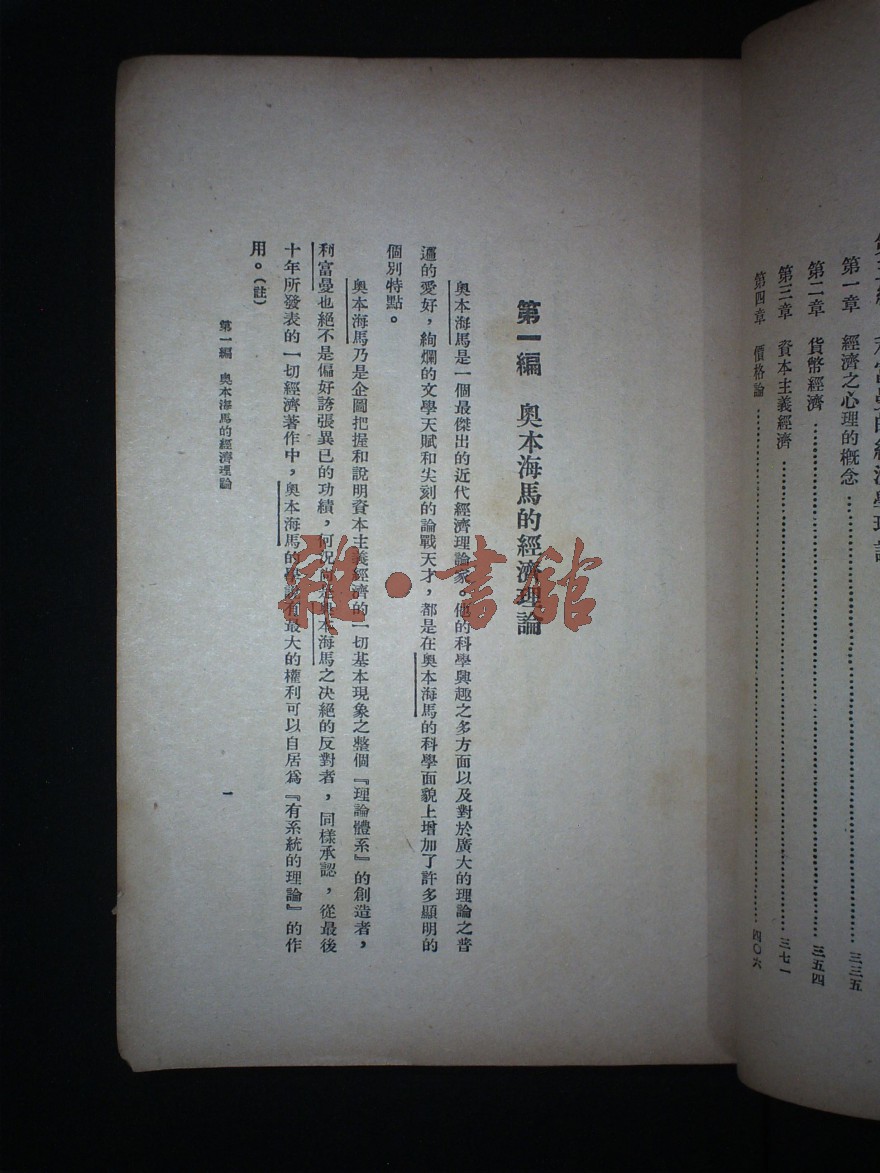 第一章　經濟之心理的概念……三三五
第二章　貨幣經濟……三五四
第三章　資本主義經濟……三七一
第四章　價格論……四〇六
第一編　奧本海馬的經濟理論
奧本海馬是一個最傑出的近代經濟理論家。他的科學興趣之多方面以及對於廣大的理論之普
遍的愛好，絢爛的文學天賦和尖刻的論戰天才，都是在奧本海馬的科學面貌上增加了許多顯明的
個別特點。
奧本海馬乃是企圖把握和說明資本主義經濟的一切基本現象之整個『理論體系』的創造者，
利富曼也絕不是偏好誇張異己的功績，何況奧本海馬之決絕的反對者，同樣承認，從最後
十年所發表的一切經濟著作中，奧本海馬的有最大的權利可以自居爲『有系統的理論』的作
用。（註）
第一編　奧本海馬的經濟理論
一
雜·書館